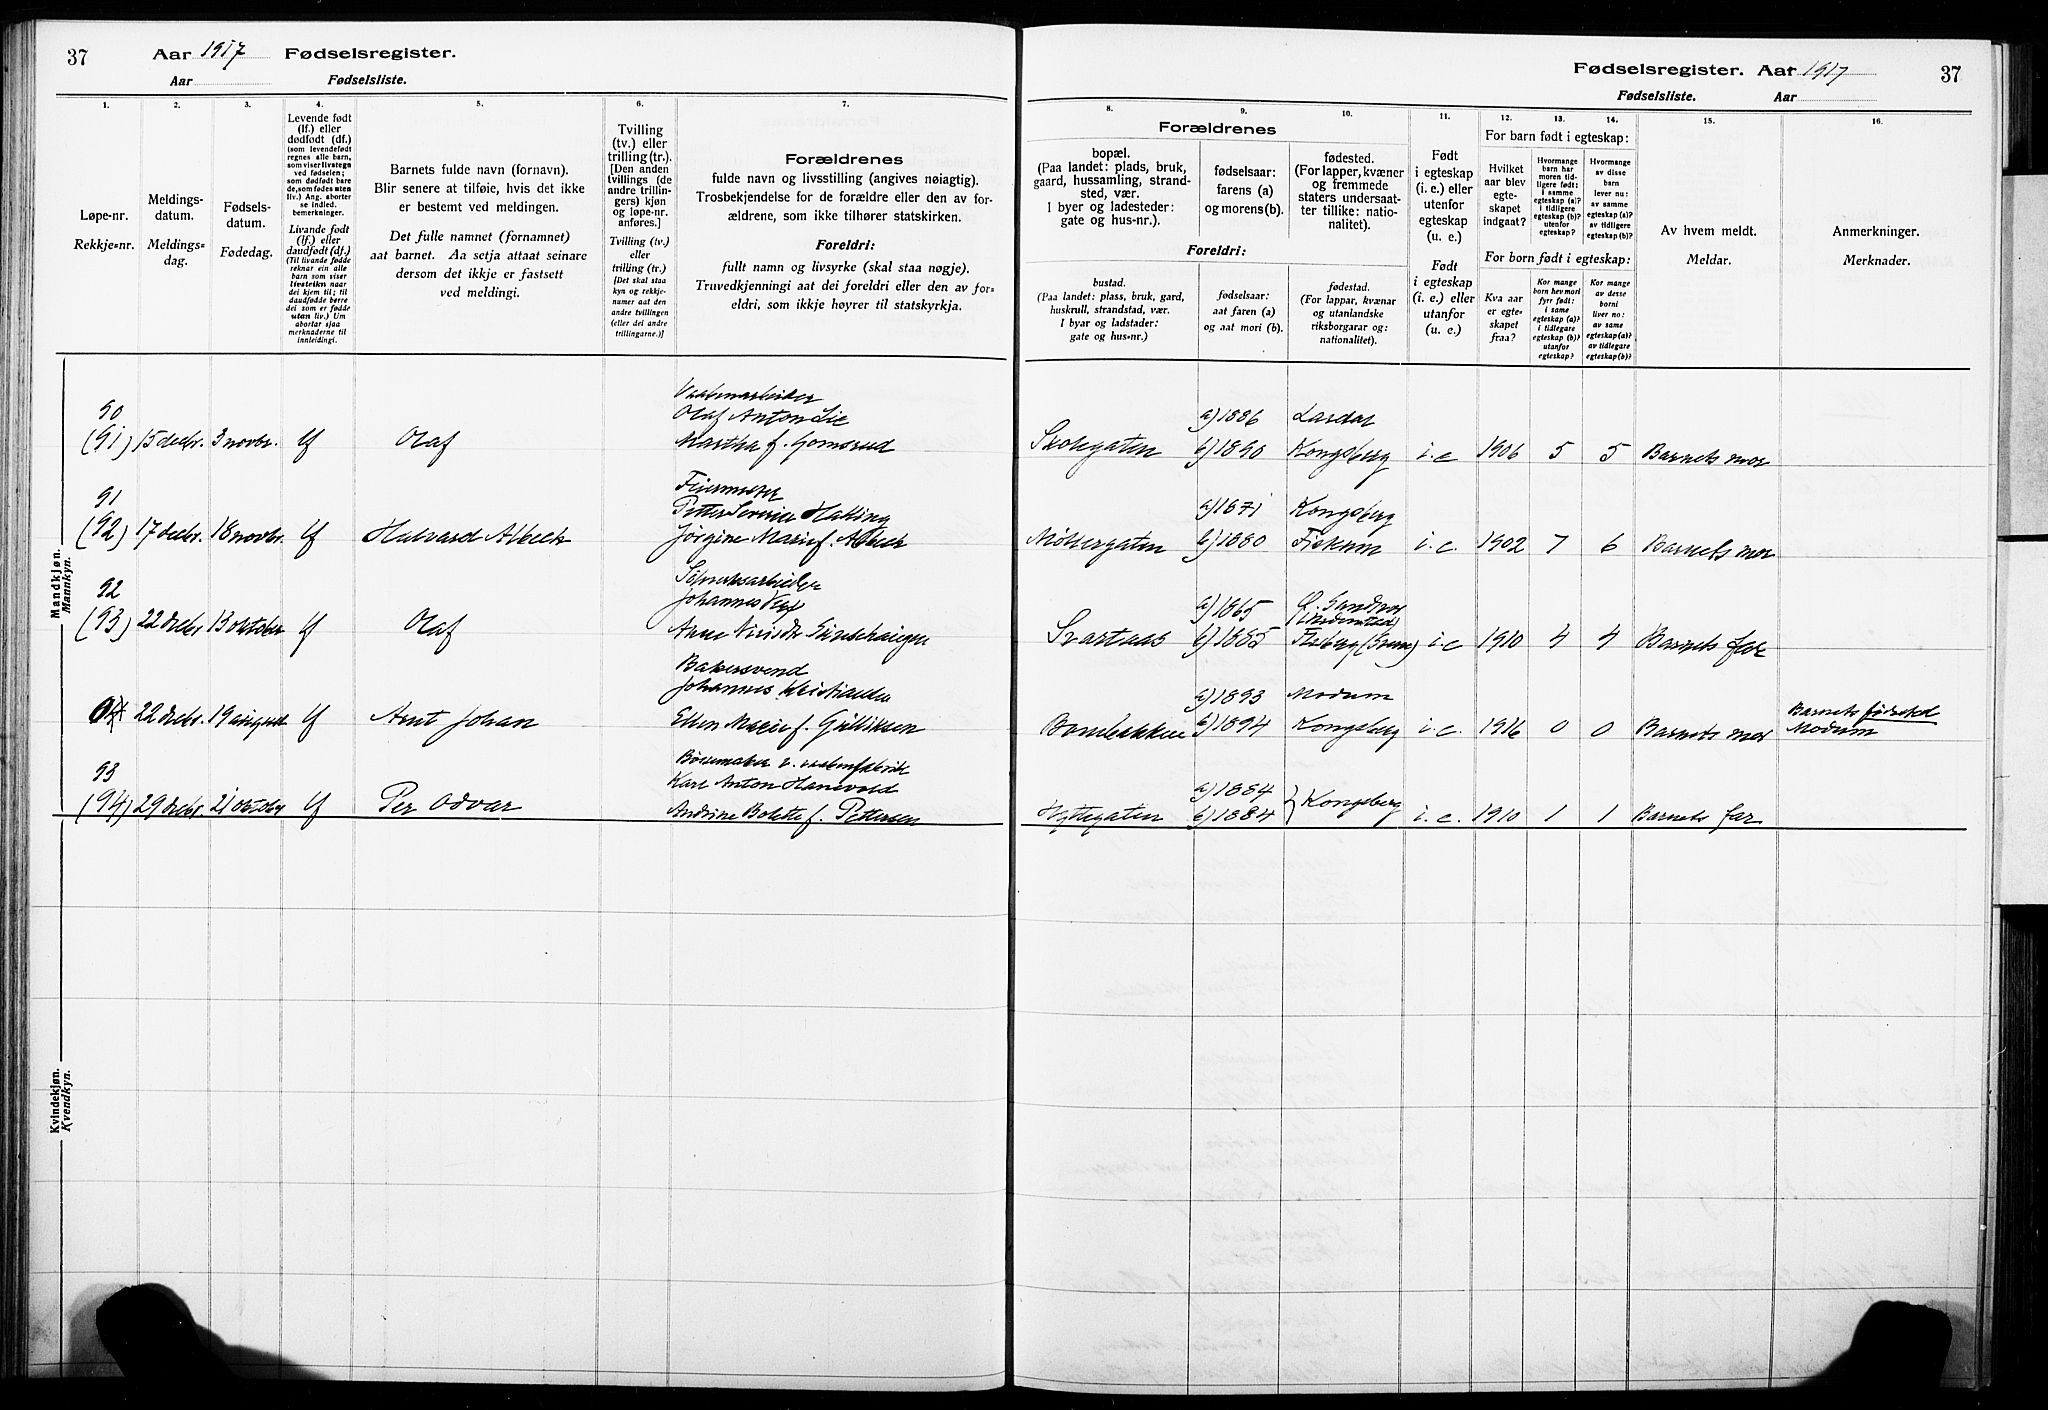 37
Aar 1917 Fødselsregister.
Aar Fødselsliste.
1. 2. 3. 4. 5. 6. 7.
Løpe-nr.
Rekkje-nr.
Meldings-
datum.
Meldings-
dag.
Fødsels-
datum.
Fødedag.
Levende født
(lf.) eller
dødfødt (df.)
(som levendefødt
regnes alle barn,
som viser livstegn
ved fødselen;
som dødfødt bare
de, som fødes uten
liv.) Ang. aborter
se indled.
bemerkninger.
Livande født
(lf.) eller
daudfødt (df.)
(Til livande fødde
reknar ein alle
barn som viser
livsteikn naar
dei kjem til; til
daudfødde berre
dei som er fødde
utan liv.) Um
abortar sjaa
merknaderne til
innleidingi.
Barnets fulde navn (fornavn).
Blir senere at tilføie, hvis det ikke
er bestemt ved meldingen.
Det fulle namnet (fornamnet)
aat barnet. Aa setja attaat seinare
dersom det ikkje er fastsett
ved meldingi.
Tvilling
(tv.) eller
trilling (tr.).
[Den anden
tvillings (de
andre trillin-
gers) kjøn
og løpe-nr.
anføres.]
Tvilling (tv.)
eller
trilling (tr.)
[Det skal staa
kyn og rekkje-
numer aat den
andre tvillingen
(eller dei andre
trillingarne.)]
Forældrenes
fulde navn og livsstilling (angives nøiagtig).
Trosbekjendelse for de forældre eller den av for-
ældrene, som ikke tilhører statskirken.
Foreldri:
fullt namn og livsyrke (skal staa nøgje).
Truvedkjenningi aat dei foreldri eller den av for-
eldri, som ikkje høyrer til statskyrkja.
Mandkjøn.
Mannkyn.
90
(91) 15 decbr. 3 novbr. lf Olaf
Vaabenarbeider
Olaf Anton Lie
Martha f. Gomsrud
91
(92) 17 decbr. 18 novbr. lf Halvard Albeck
Feiermester
Petter Severin Halling
Jørgine Marie f. Albeck
92
(93) 22 decbr 13 oktober lf Olaf
Johannes
Anne
22 decbr. 19 august lf Arnt Johan
Bakersvend
Johannes Kristiansen
Ellen Marie f. Gulliksen
93
(94) 29 decbr. 21 oktober lf Per Odvar
Bøssemaker v. vaabenfabrik
Karl Anton Hanevold
Andrine Bolette f. Pettersen
Kvindekjøn.
Kvendkyn.
Fødselsregister. Aar 1917
37
Fødselsliste. Aar
8. 9. 10. 11. 12. 13. 14. 15. 16.
Forældrenes
bopæl.
(Paa landet: plads, bruk,
gaard, hussamling, strand-
sted, vær.
I byer og ladesteder:
gate og hus-nr.).
fødselsaar:
farens (a)
og morens (b).
fødested.
(For lapper, kvæner
og fremmede
staters undersaat-
ter tillike: natio-
nalitet).
Foreldri:
bustad.
(Paa landet: plass, bruk, gard,
huskrull, strandstad, vær.
I byar og ladstader:
gate og hus-nr.).
fødselsaar:
aat faren (a)
og aat mori (b).
fødestad.
(For lappar, kvænar
og utanlandske
riksborgarar og:
nationalitet).
Født
i egteskap
(i. e.) eller
utenfor
egteskap
(u. e.)
Født
i egteskap
(i. e.) eller
utanfor
(u. e.)
For barn født i egteskap:
Hvilket
aar blev
egte-
skapet
indgaat?
Hvormange
barn har
moren tid-
ligere født:
i samme
egteskap (a)?
i tidligere
egteskap (b)?
utenfor
egteskap?
Hvormange
av disse
barn
lever nu:
av samme
egteskap (a)?
av tidligere
egteskap (b)?
For born født i egteskap:
Kva aar
er egte-
skapet
fraa?
Kor mange
born hev mori
fyrr født:
i same
egteskap (a)?
i tidlegare
egteskap (b)?
utanfor
egteskap?
Kor mange
av desse
borni
liver no:
av same
egteskap (a)?
av tidlegare
egteskap (b)?
Av hvem meldt.
Meldar.
Anmerkninger.
Merknader.
Skolegaten a) 1886 Lærdal
b) 1890 Kongsberg i. e 1906 5 5 Barnets mor
a) 1871 Kongsberg
b) 1880 Fiskum i. e. 1902 7 6 Barnets mor
a) 1865
Svartaas b) 1885 i. e 1910 4 4 Barnets far
a) 1893 Modum
b) 1894 Kongsberg i. e. 1916 0 0 Barnets mor
Barnets fødested
Modum
a) 1884
Hyttegaten b) 1884 } Kongsberg i. e. 1910 1 1 Barnets far